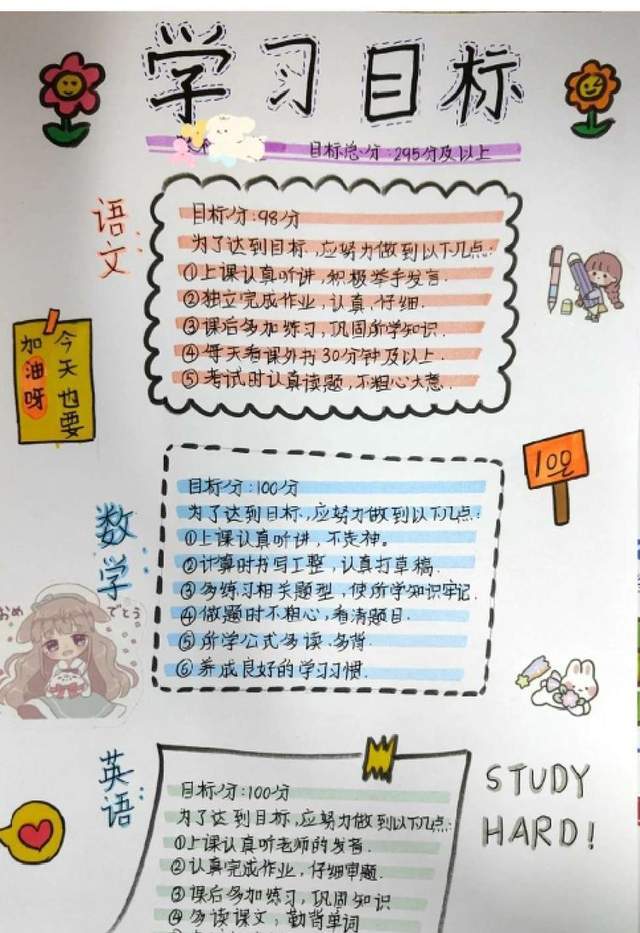 学习目标
目标总分:295分及以上
语文:
目标分:98分
为了达到目标,应努力做到以下几点:
①上课认真听讲,积极举手发言.
②独立完成作业,认真、仔细.
③课后多加练习,巩固所学知识.
④每天看课外书30分钟及以上.
⑤考试时认真读题,不粗心大意.
今天也要
加油呀
100
数学:
目标分:100分
为了达到目标,应努力做到以下几点:
①上课认真听讲,不走神。
②计算时书写工整,认真打草稿.
③多练习相关题型,使所学知识牢记.
④做题时不粗心,看清题目.
⑤所学公式多读、多背.
⑥养成良好的学习习惯.
おめ
でとう
英语:
目标分:100分
为了达到目标,应努力做到以下几点:
①上课认真听老师的发音.
②认真完成作业,仔细审题.
③课后多加练习,巩固知识
④多读课文,勤背单词
STUDY
HARD!